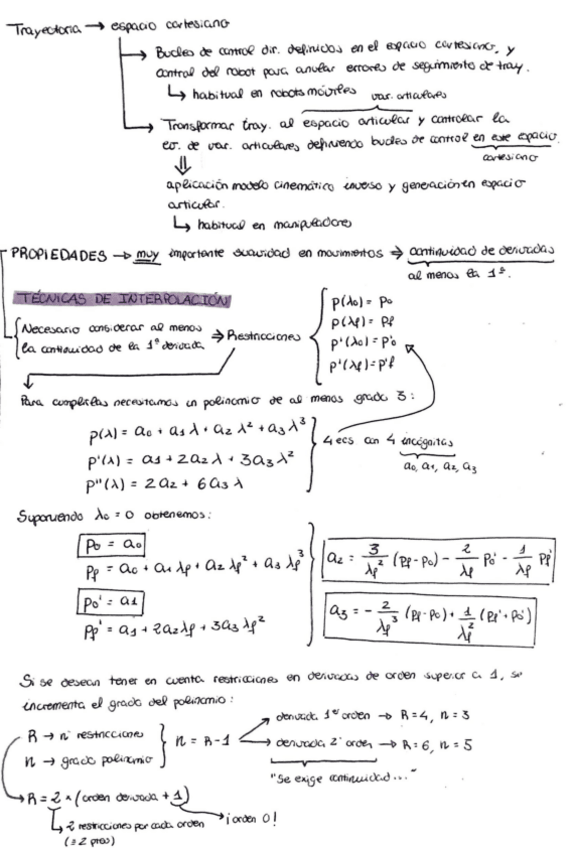 Trayectoria → espacio cartesiano
→ Bucles de control dir. definidos en el espacio cartesiano, y
control del robot para anular errores de seguimiento de tray.
↳ habitual en robots móviles
var. articulares
→ Transformar tray. al espacio articular y controlar la
ev. de var. articulares definiendo bucles de control en este espacio.
cartesiano
⇓
aplicación modelo cinemático inverso y generación en espacio
articular.
↳ habitual en manipuladores
PROPIEDADES → muy importante suavidad en movimientos ⇒ continuidad de derivadas
al menos la 1ª.
TÉCNICAS DE INTERPOLACIÓN
Necesario considerar al menos
la continuidad de la 1ª derivada ⇒ Restricciones
p(λ0) = p0
p(λf) = pf
p'(λ0) = p'0
p'(λf) = p'f
Para cumplirlas necesitamos un polinomio de al menos grado 3:
p(λ) = a0 + a1 λ + a2 λ² + a3 λ³
p'(λ) = a1 + 2a2 λ + 3a3 λ²
p''(λ) = 2a2 + 6a3 λ
4 ecs con 4 incógnitas
a0, a1, a2, a3
Suponiendo λ0 = 0 obtenemos:
p0 = a0
pf = a0 + a1 λf + a2 λf² + a3 λf³
p0' = a1
pf' = a1 + 2a2λf + 3a3 λf²
a2 = 3/λf² (pf - p0) - 2/λf p0' - 1/λf pf'
a3 = - 2/λf³ (pf - p0) + 1/λf² (pf' + p0')
Si se desean tener en cuenta restricciones en derivadas de orden superior a 1, se
incrementa el grado del polinomio:
R → nº restricciones
n → grado polinomio
n = R - 1
→ derivada 1er orden → R = 4, n = 3
→ derivada 2º orden → R = 6, n = 5
"se exige continuidad..."
→ R = 2 * (orden derivada + 1)
→ ¡orden 0!
↳ 2 restricciones por cada orden
(≡ 2 ptos)